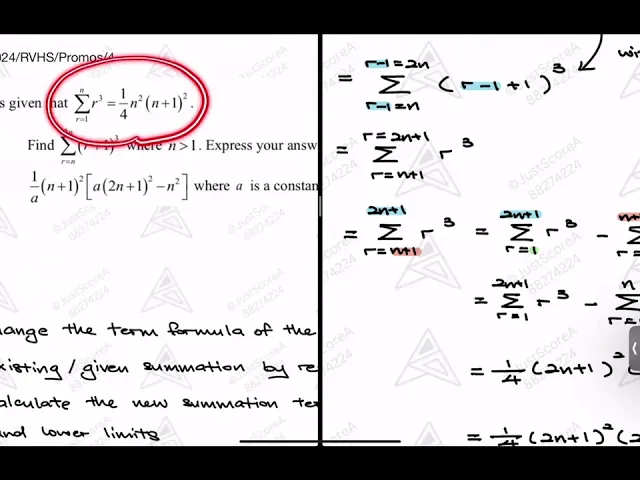 024/RVHS/Promos/4
s given that \sum_{r=1}^{n} r^3 = \frac{1}{4} n^2 (n+1)^2 .
Find \sum_{r=n} (r+1)^3 where n > 1. Express your answ
\frac{1}{a} (n+1)^2 [ a(2n+1)^2 - n^2 ] where a is a constan
hange the term formula of the
xisting / given summation by re
alculate the new summation te
and lower limits
= \sum_{r-1=n}^{r-1=2n} ( r-1+1 )^3
= \sum_{r=n+1}^{r=2n+1} r^3
= \sum_{r=n+1}^{2n+1} r^3 = \sum_{r=1}^{2n+1} r^3 -
= \sum_{r=1}^{2n+1} r^3 - \sum_{r=}^{n}
= \frac{1}{4} (2n+1)^2 (
= \frac{1}{4} (2n+1)^2 (2
©JustScoreA
88274224